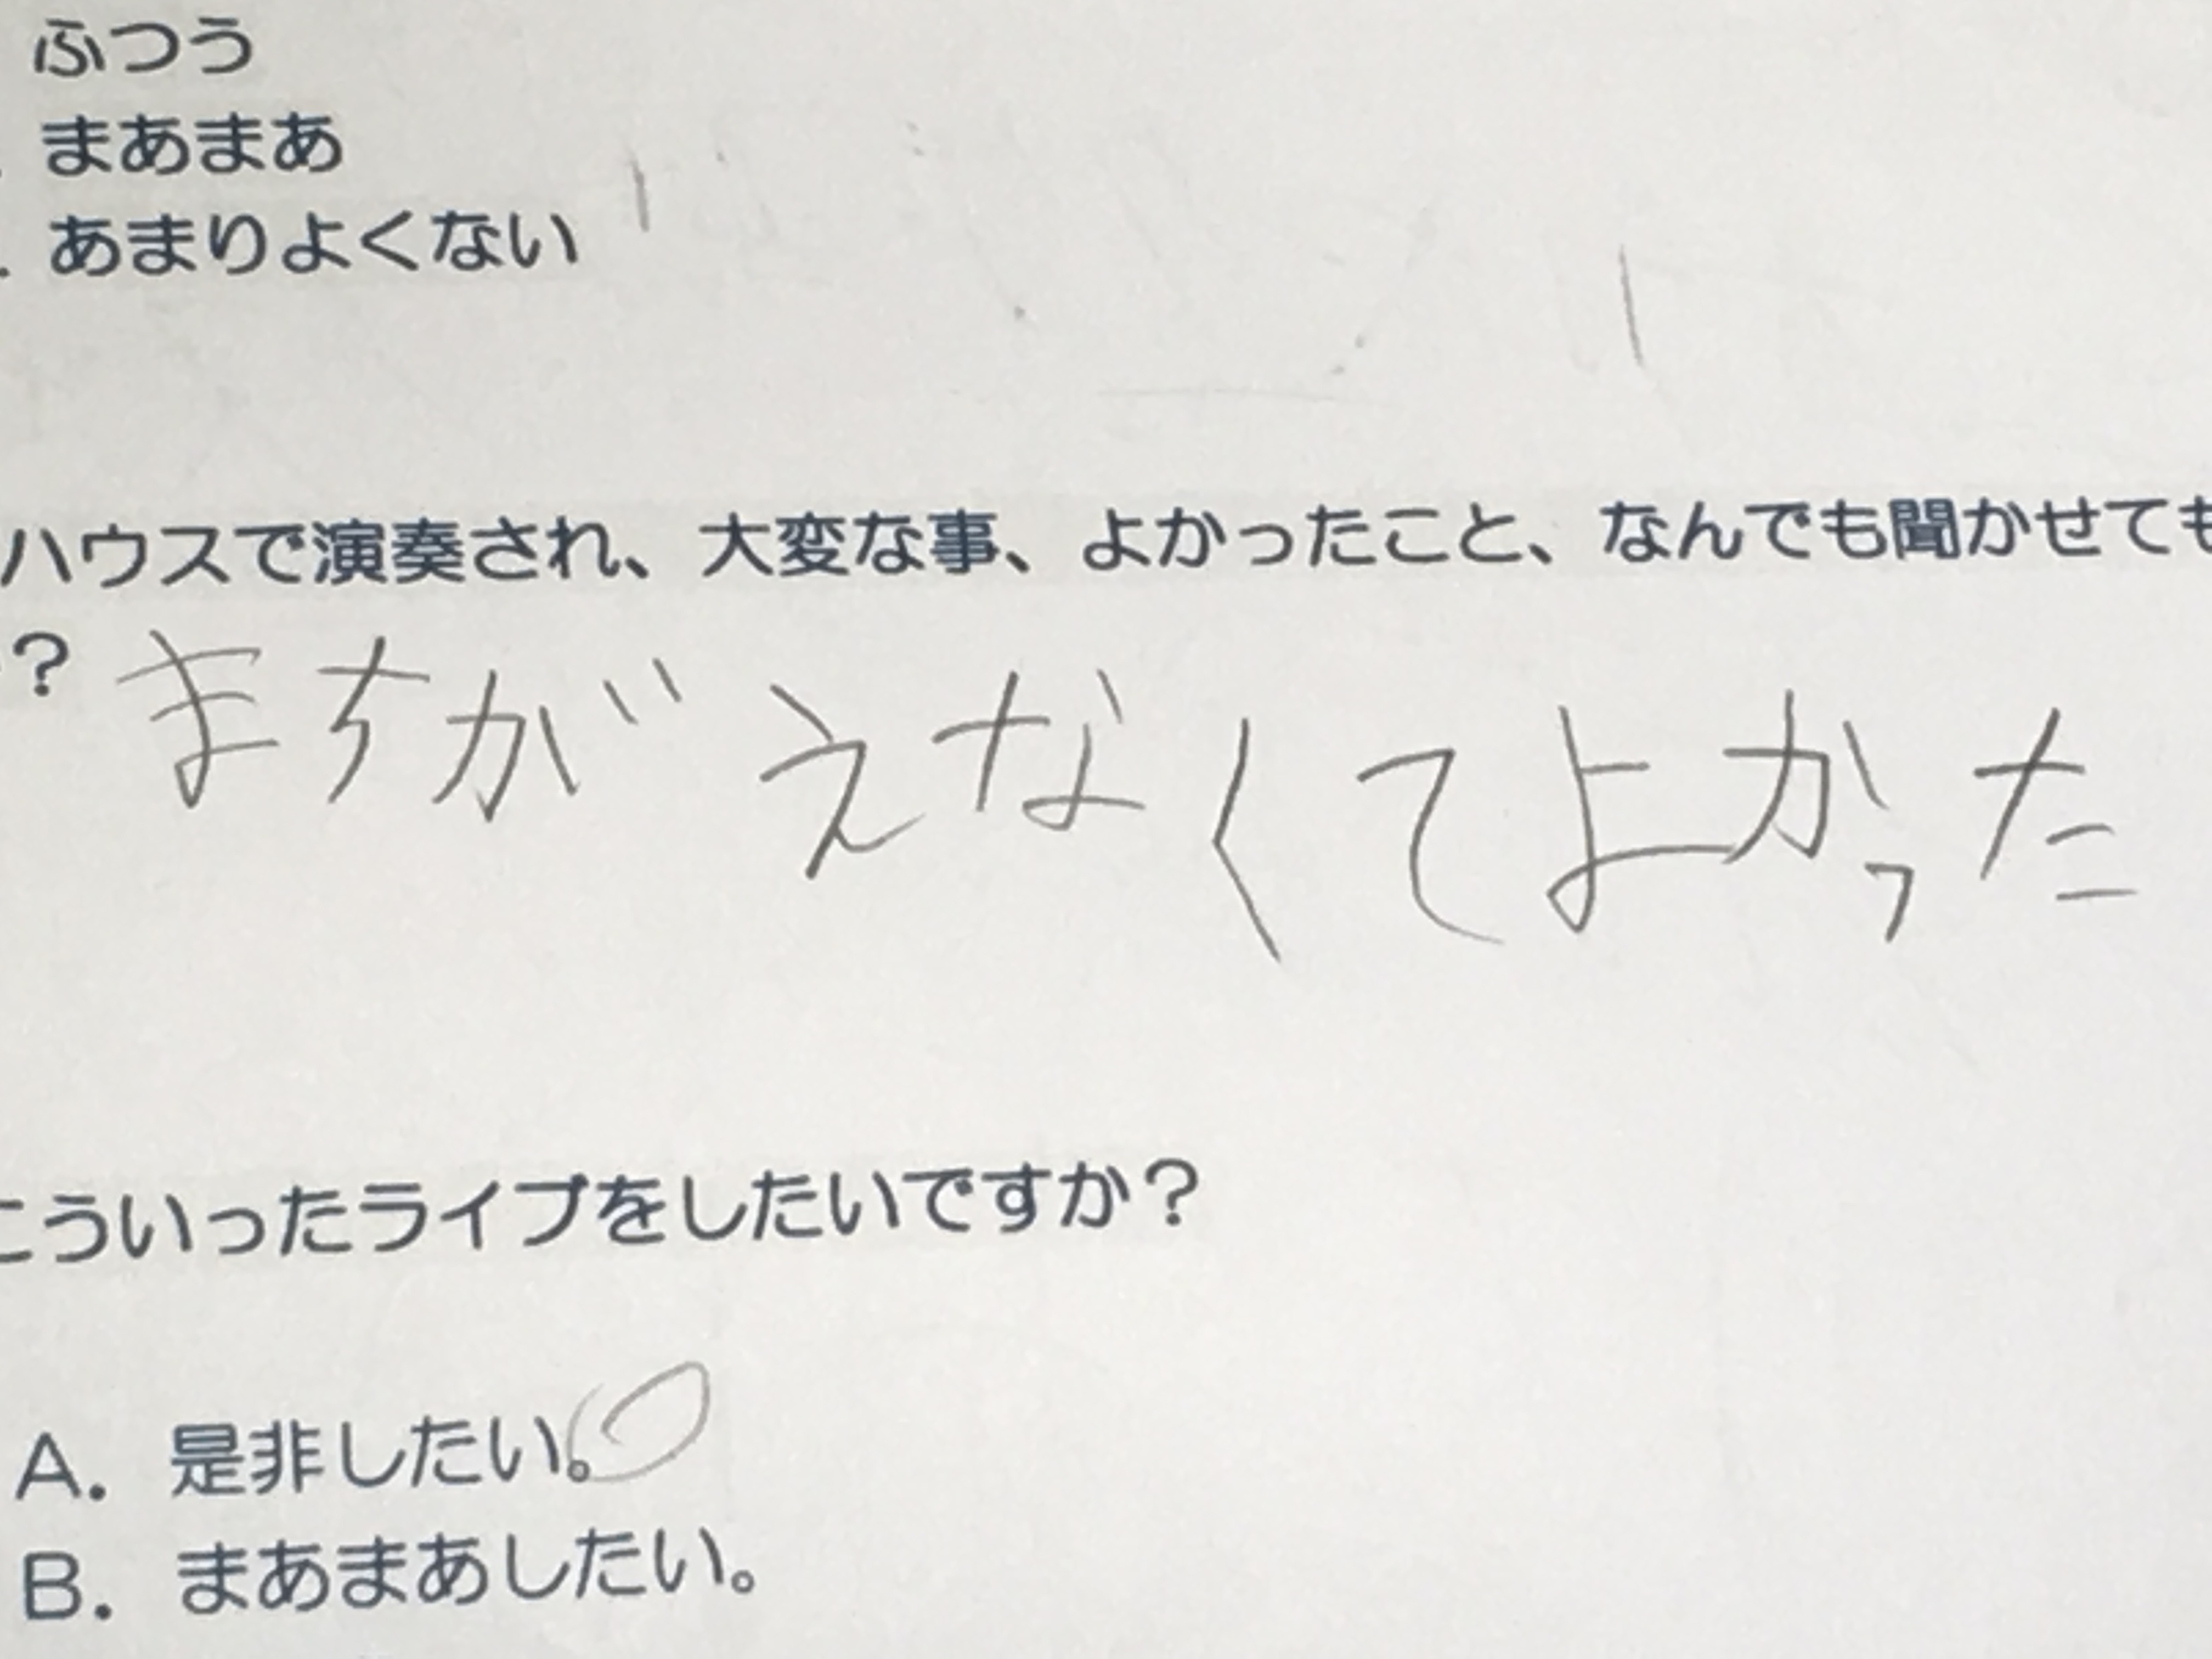 ふつう
まあまあ
. あまりよくない
ハウスで演奏され、大変な事、よかったこと、なんでも聞かせても
?
まちがえなくてよかった
こういったライブをしたいですか?
A. 是非したい。
B. まあまあしたい。